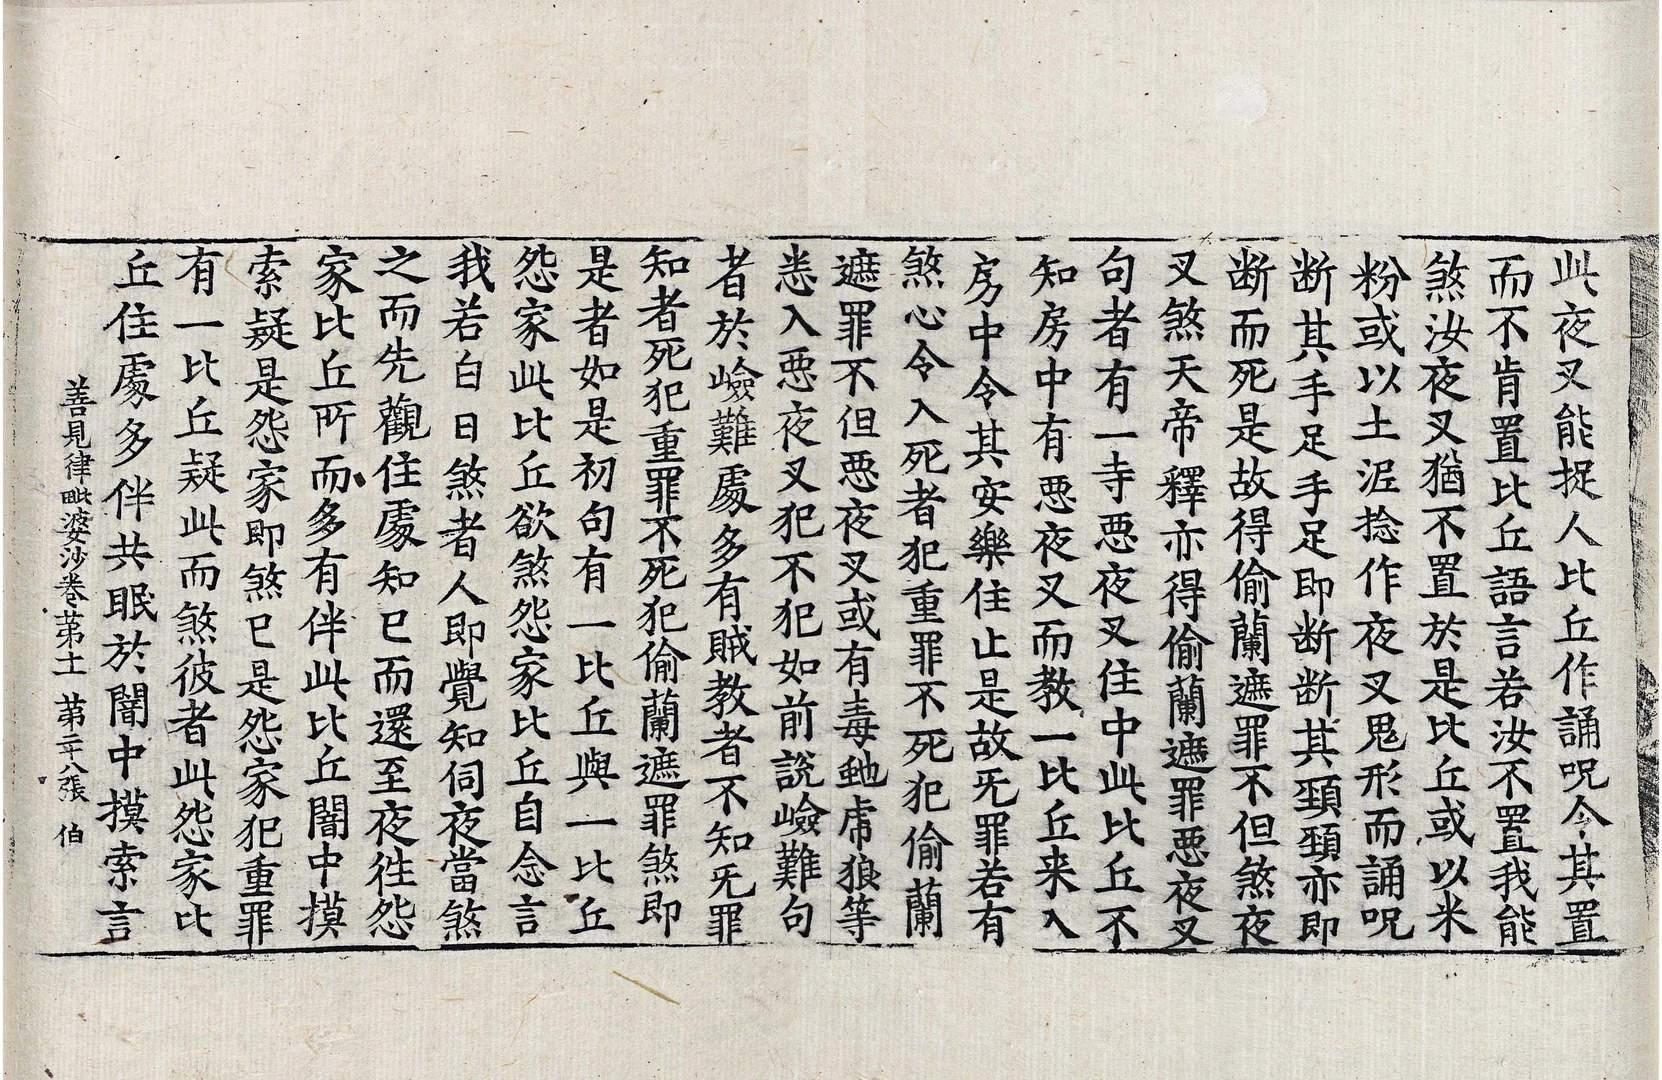 此夜叉能捉人比丘作誦呪令其置
而不肯置比丘語言若汝不置我能
煞汝夜叉猶不置於是比丘或以米
粉或以土泥捻作夜叉鬼形而誦呪
断其手足手足即断断其頸頸亦即
断而死是故得偷蘭遮罪不但煞夜
叉煞天帝釋亦得偷蘭遮罪惡夜叉
句者有一寺惡夜叉住中此比丘不
知房中有惡夜叉而教一比丘来入
房中令其安樂住止是故无罪若有
煞心令入死者犯重罪不死犯偷蘭
遮罪不但惡夜叉或有毒虵虎狼等
悉入惡夜叉犯不犯如前說嶮難句
者於嶮難處多有賊教者不知无罪
知者死犯重罪不死犯偷蘭遮罪煞即
是者如是初句有一比丘與一比丘
怨家此比丘欲煞怨家比丘自念言
我若白日煞者人即覺知伺夜當煞
之而先觀住處知已而還至夜徃怨
家比丘所而多有伴此比丘闇中摸
索疑是怨家即煞已是怨家犯重罪
有一比丘疑此而煞彼者此怨家比
丘住處多伴共眠於闇中摸索言
善見律毗婆沙卷苐十一 苐二十八張 伯